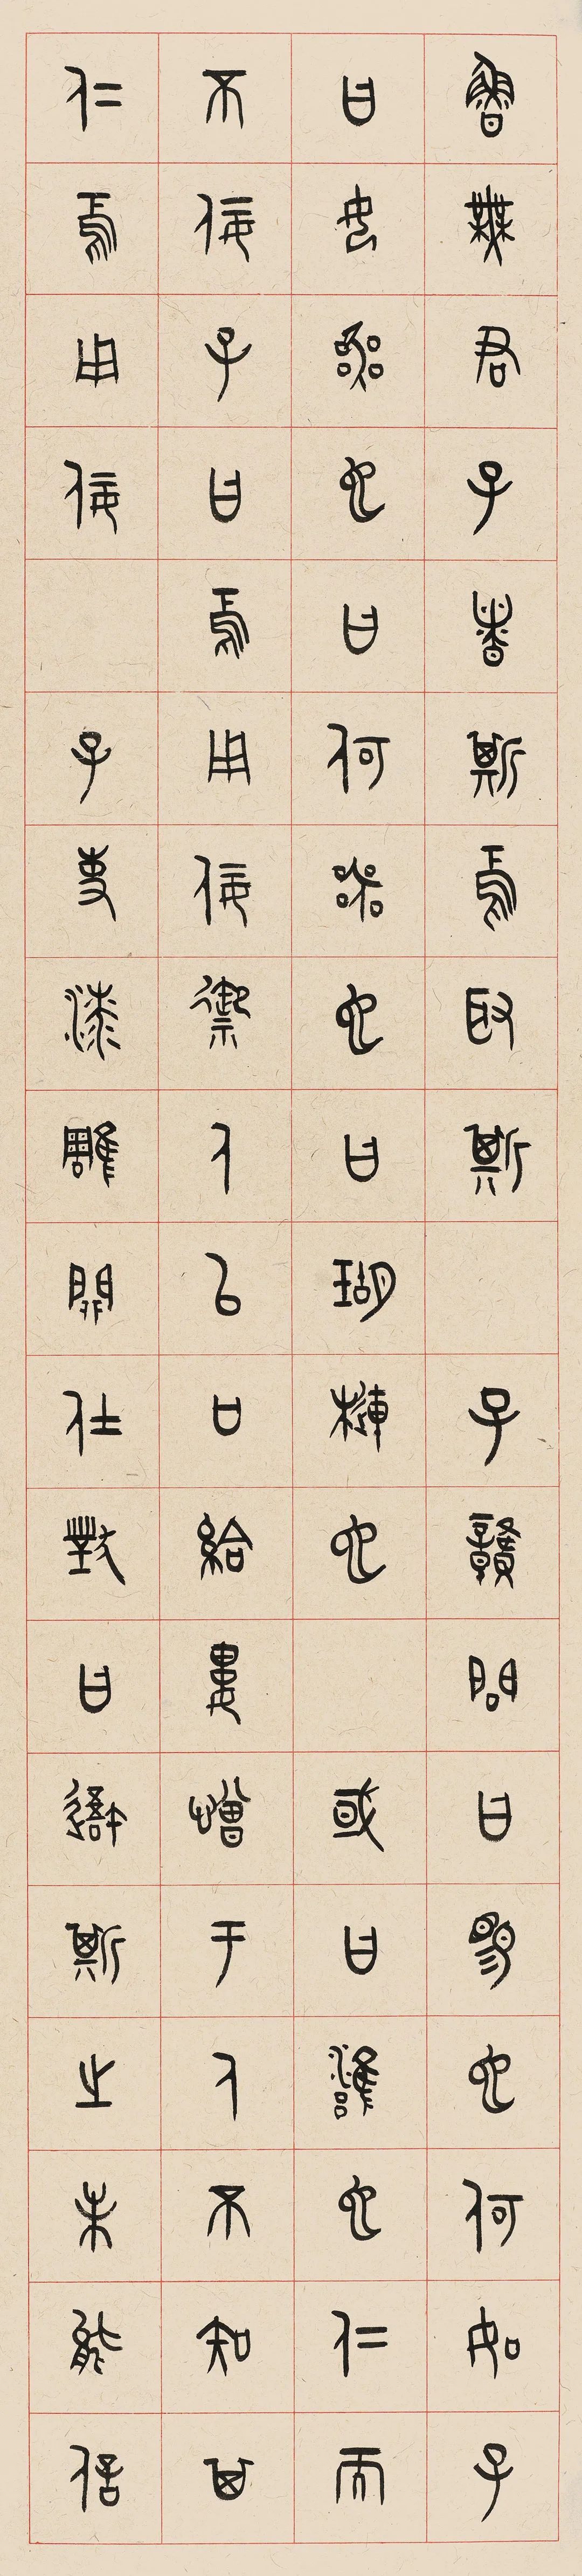 魯無君子者斯焉取斯　子贛問曰賜也何如子
曰女器也曰何器也曰瑚槤也　或曰雍也仁而
不佞子曰焉用佞禦人以口給婁憎于人不知其
仁焉用佞　子使漆雕開仕對曰吾斯之未能信